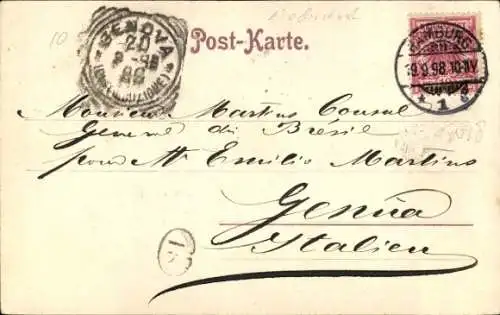 GENOVA
20
9-98
Post-Karte.
HAMBURG
9.9.98.10-11V.
* 1 *
Monsieur Martins Consul
General du Bresil
pour Mr Emilio Martins
Genua
Italien